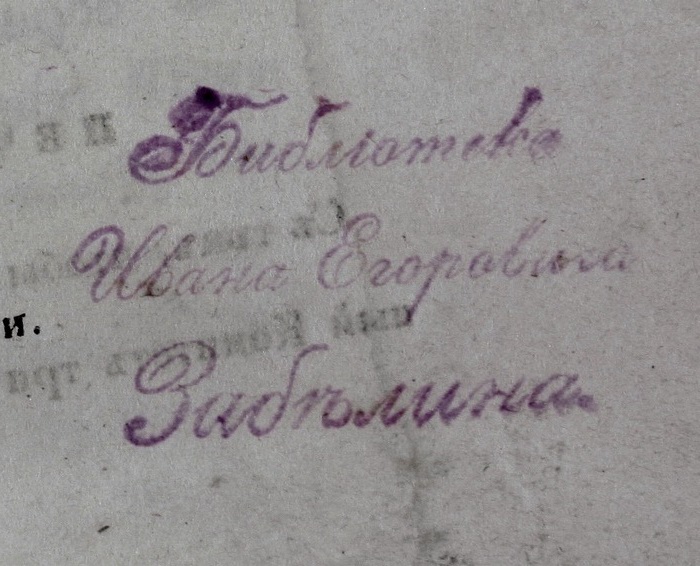 Библіотека
Ивана Егоровича
и.
Забѣлина.